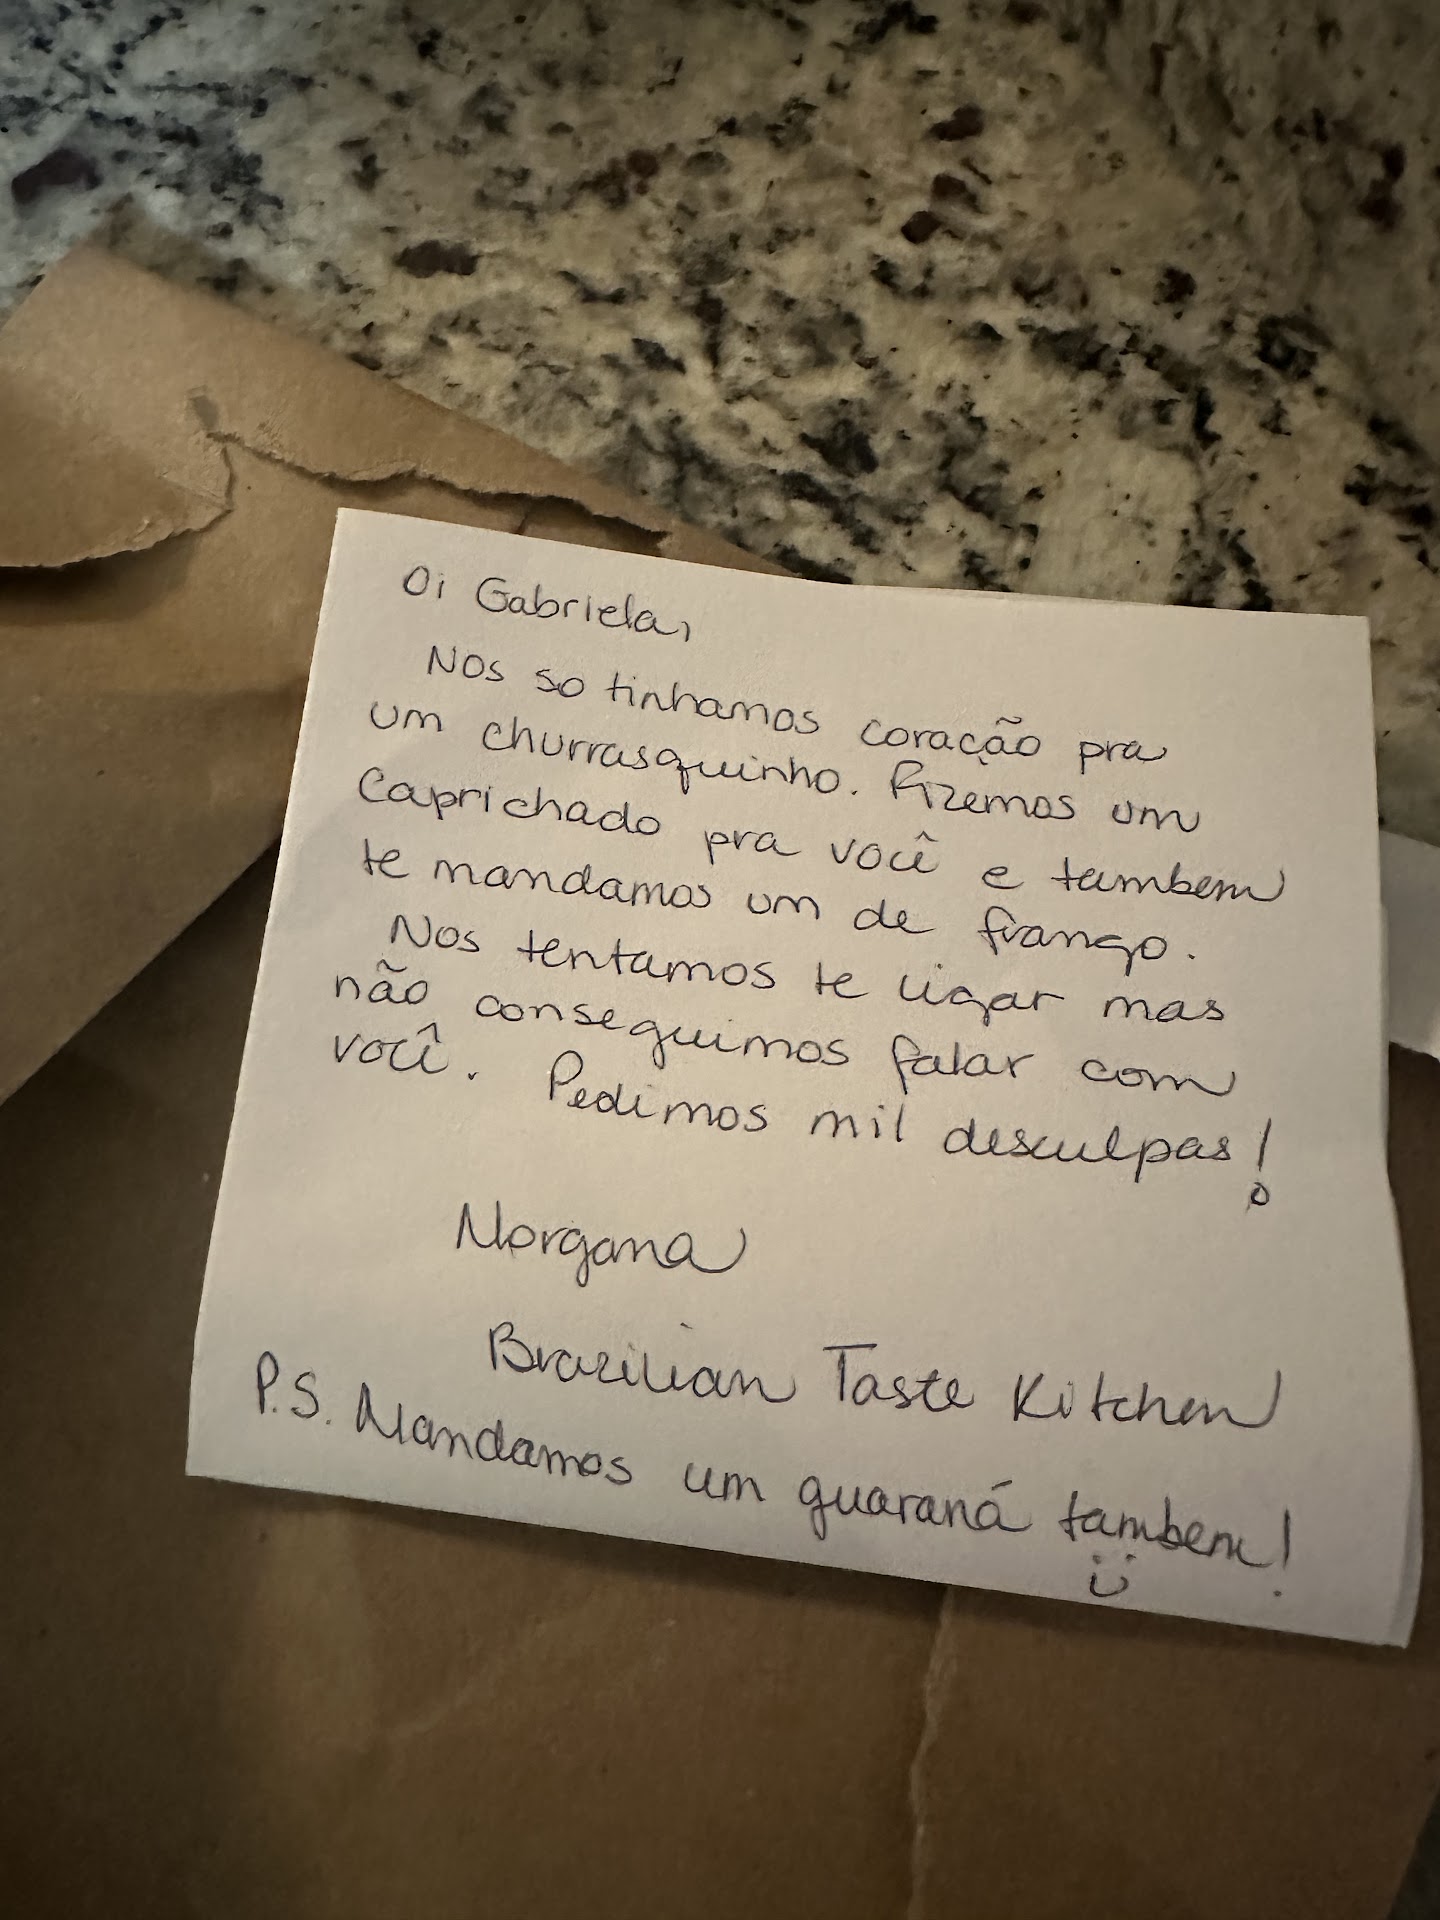 Oi Gabriela,
Nos so tinhamos coração pra
um churrasquinho. Fizemos um
caprichado pra você e tambem
te mandamos um de frango.
Nos tentamos te ligar mas
não conseguimos falar com
você. Pedimos mil desculpas!
Morgana
Brazilian Taste Kitchen
P.S. Mandamos um guaraná tambem!